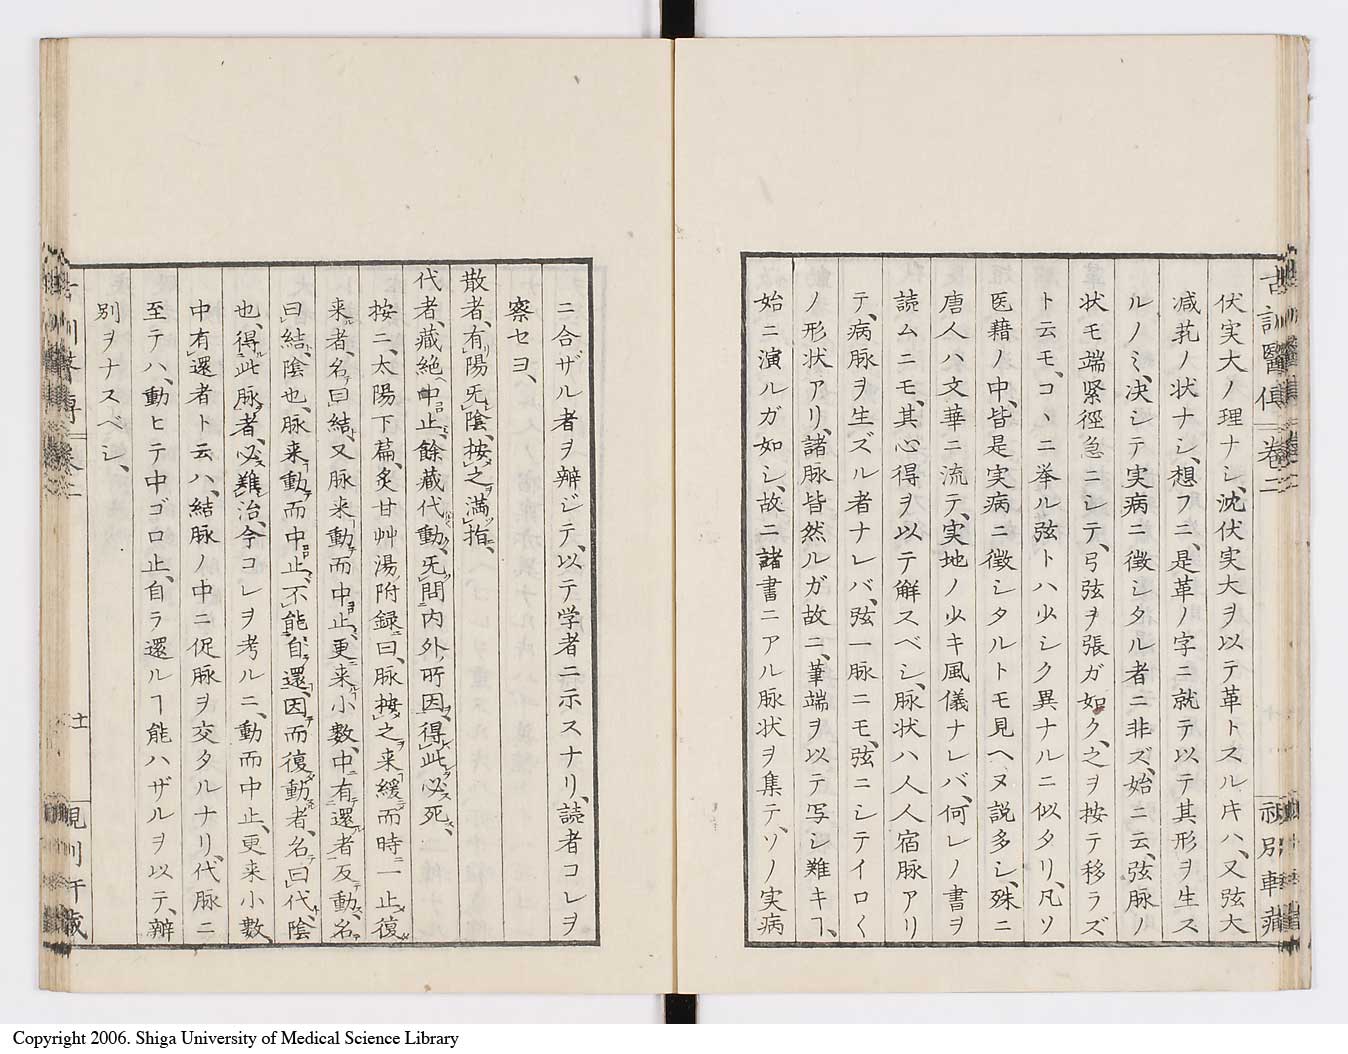 伏実大ノ理ナシ、沈伏実大ヲ以テ革トスル㐧ハ、又弦大
減芤ノ状ナシ、想フニ、是革ノ字ニ就テ以テ其形ヲ生ス
ルノミ、决シテ実病ニ徴シタル者ニ非ズ、始ニ云、弦脉ノ
状モ端緊徑急ニシテ、弓弦ヲ張ガ如ク、之ヲ按テ移ラズ
ト云モ、コヽニ挙ル弦トハ少シク異ナルニ似タリ、凡ソ
医藉ノ中、皆是実病ニ徴シタルトモ見ヘヌ説多シ、殊ニ
唐人ハ文華ニ流テ、実地ノ少キ風儀ナレバ、何レノ書ヲ
読ムニモ、其心得ヲ以テ解スベシ、脉状ハ人人宿脉アリ
テ、病脉ヲ生ズル者ナレバ、弦一脉ニモ、弦ニシテイロ〱
ノ形状アリ、諸脉皆然ルガ故ニ、筆端ヲ以テ写シ難キヿ、
始ニ演ルガ如シ、故ニ諸書ニアル脉状ヲ集テ、ソノ実病
ニ合ザル者ヲ辨ジテ、以テ学者ニ示スナリ、読者コレヲ
察セヨ、
散者、有陽旡陰、按之満指、
代者、藏絶中止、餘藏代動、旡問内外所因、得此必死、
按ニ、太陽下篇、炙甘艸湯附録曰、脉按之来緩而時一止復
来者、名曰結、又脉来動而中止、更来小數、中有還者反動、名
曰結、陰也、脉来動而中止、不能自還、因而復動者、名曰代、陰
也、得此脉者、必難治、今コレヲ考ルニ、動而中止、更来小數、
中有還者ト云ハ、結脉ノ中ニ促脉ヲ交タルナリ、代脉ニ
至テハ、動ヒテ中ゴロ止、自ラ還ルヿ能ハザルヲ以テ、辨
別ヲナスベシ、
十
Copyright 2006. Shiga University of Medical Science Library